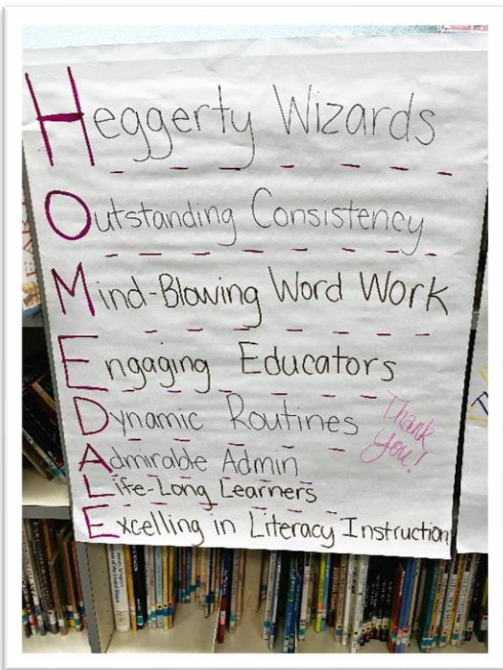 Heggerty Wizards
Outstanding Consistency
Mind-Blowing Word Work
Engaging Educators
Dynamic Routines
Admirable Admin
Life-Long Learners
Excelling in Literacy Instruction
Thank
You!